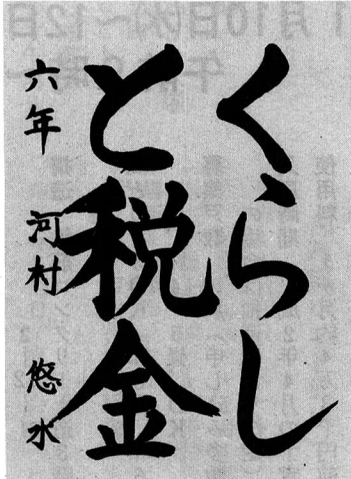 くらし
と税金
六年 河村 悠水